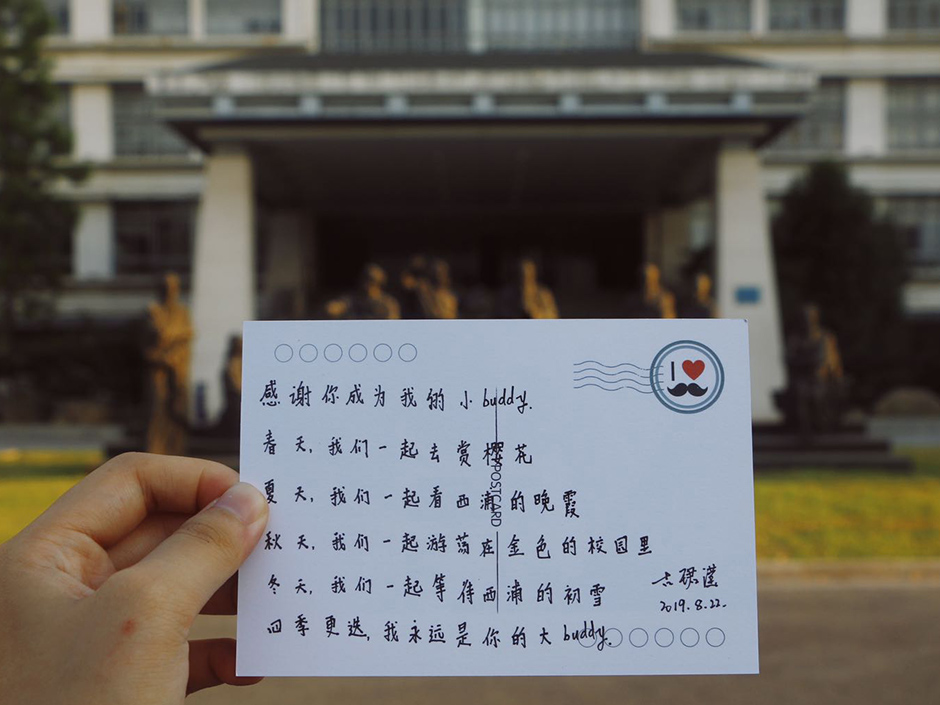 I
感谢你成为我的小buddy.
春天,我们一起去赏樱花
夏天,我们一起看西浦的晚霞
POSTCARD
秋天,我们一起游荡在金色的校园里
冬天,我们一起等待西浦的初雪
2019.8.22.
四季更迭,我永远是你的大buddy.